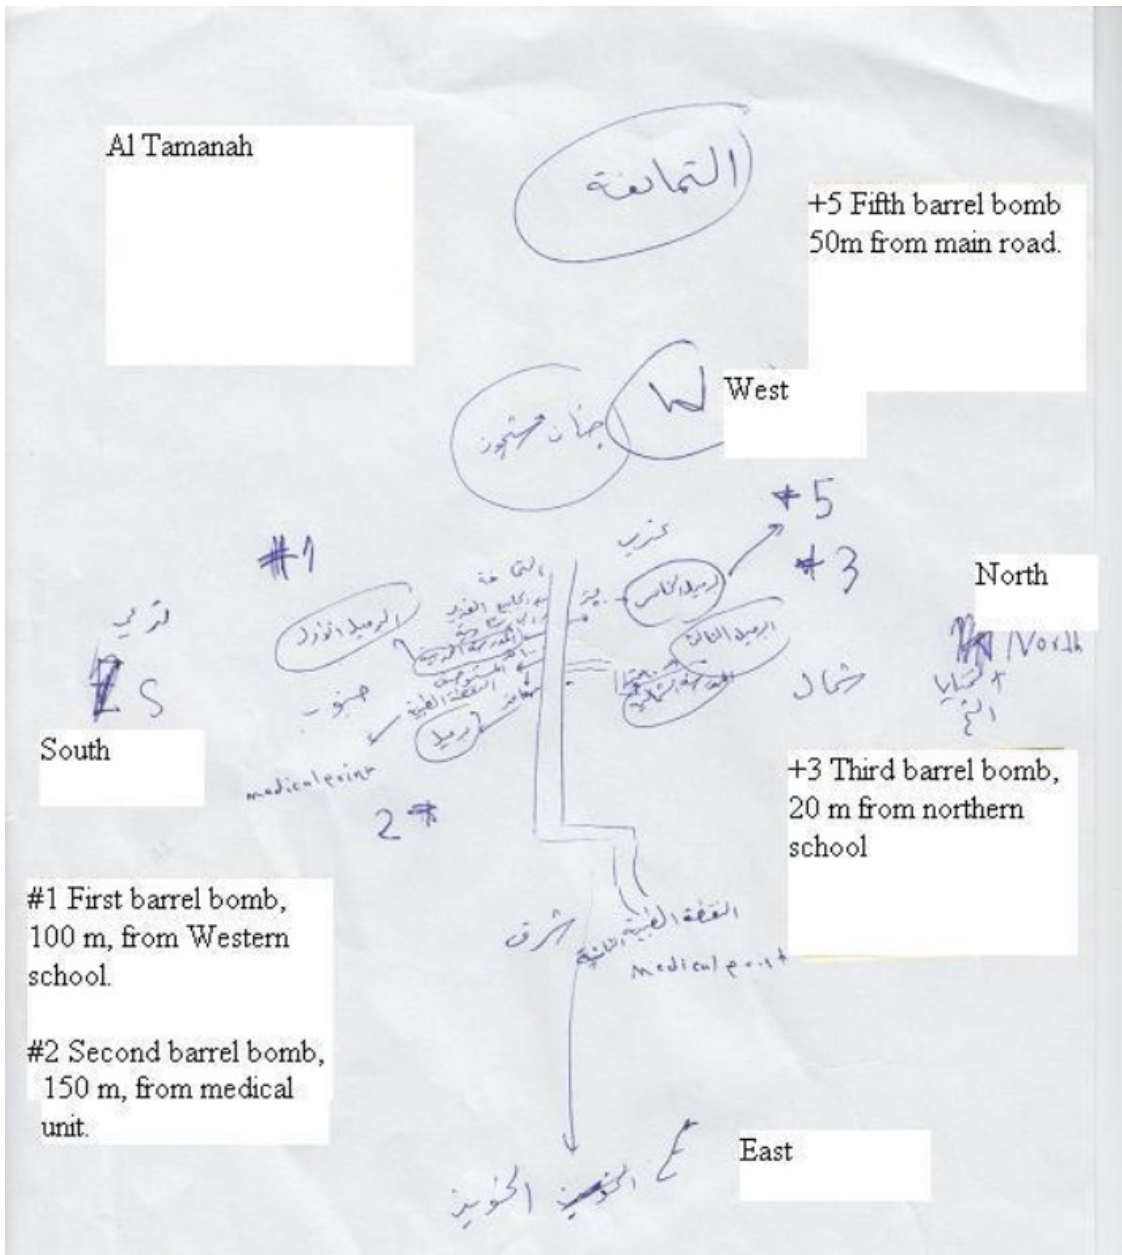 Al Tamanah
التمانعة
+5 Fifth barrel bomb
50m from main road.
W
West
#5
غرب
#1
#3
North
North
البرميل الأول
البرميل الخامس
البرميل الثالث
المدرسة الغربية
المستوصف
النقطة الطبية
المدرسة الشمالية
جنوب
شمال
S
South
برميل
medical point
2#
+3 Third barrel bomb,
20 m from northern
school
#1 First barrel bomb,
100 m, from Western
school.
#2 Second barrel bomb,
150 m, from medical
unit.
شرق
النقطة الطبية الثانية
medical point
East
الخوين